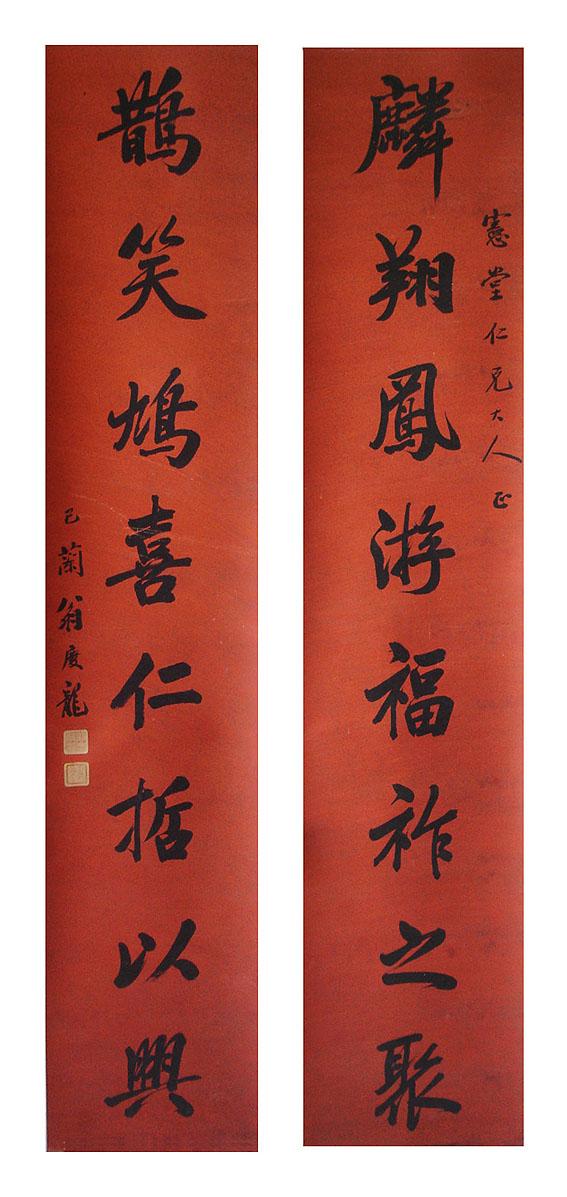 憲堂仁兄大人正
麟翔鳳游福祚之聚
鵲笑鳩喜仁哲以興
巳蘭翁慶龍